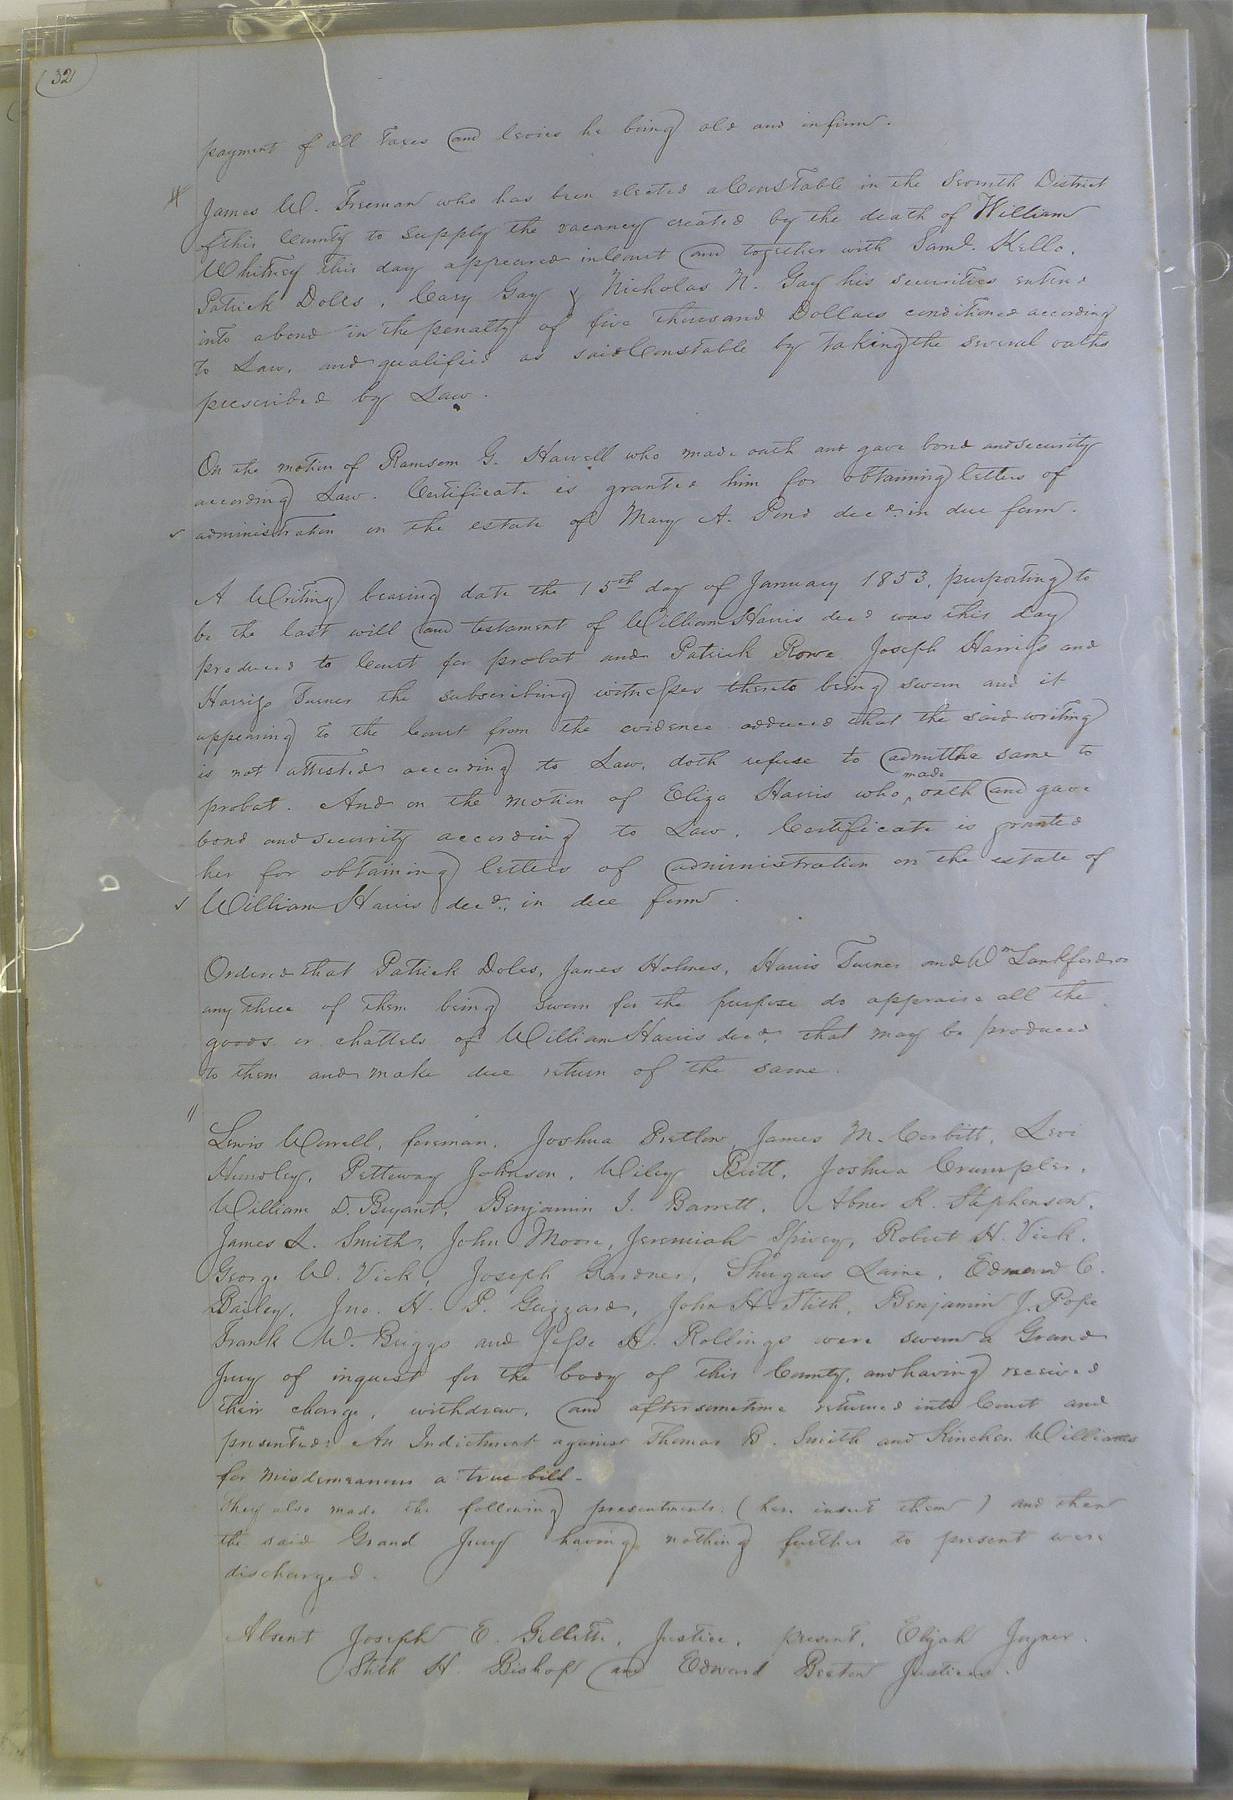 32
payment of all Taxes and levies he being old and infirm.
James W. Freeman who has been elected a Constable in the Seventh District
of this County to supply the vacancy created by the death of William
Whitney this day appeared in Court and together with Saml. Kello,
Patrick Doles, Cary Gay & Nicholas N. Gay his securities entered
into a bond in the penalty of five thousand Dollars conditioned according
to Law, and qualified as said Constable by taking the several oaths
prescribed by Law.
On the motion of Ransom G. Harvell who made oath and gave bond and security
according Law. Certificate is granted him for obtaining letters of
administration on the estate of Mary A. Pond decd. in due form.
A Writing bearing date the 15th day of January 1853, purporting to
be the last will and testament of William Harris decd was this day
produced to Court for probat and Patrick Rowe Joseph Harriss and
Harriss Turner the subscribing witnesses thereto being sworn and it
appearing to the Court from the evidence adduced that the said writing
is not attested according to Law, doth refuse to admit the same to
probat. And on the motion of Eliza Harris who made oath and gave
bond and security according to Law. Certificate is granted
her for obtaining letters of administration on the estate of
William Harris decd., in due form.
Ordered that Patrick Doles, James Holmes, Harris Turner and Wm Lankford or
any three of them being sworn for the purpose do appraise all the
goods or chattels of William Harris decd. that may be produced
to them and make due return of the same.
Lewis Worrell, foreman, Joshua Pretlow, James M. Corbitt, Levi
Humsley, Petteway Johnson, Wiley Britt, Joshua Crumpler,
William D. Bryant, Benjamin J. Barrett, Abner K. Stephenson,
James L. Smith, John Moore, Jeremiah Spivey, Robert H. Vick,
George W. Vick, Joseph Gardner, Shugars Laine, Edmund C.
Bailey, Jno. H. P. Grizzard, John H. Stith, Benjamin J. Pope
Frank W. Briggs and Jesse A. Rollings were sworn a Grand
Jury of inquest for the body of this County, and having received
their charge, withdrew, and after sometime returned into Court and
presented: An Indictment against Thomas B. Smith and Kinchen Williams
for misdemeanour a true bill-
They also made the following presentments: (here insert them) and then
the said Grand Jury having nothing further to present were
discharged.
Absent Joseph E. Gillette, Justice, present, Elijah Joyner.
Stith H. Bishop and Edward Beaton Justices.